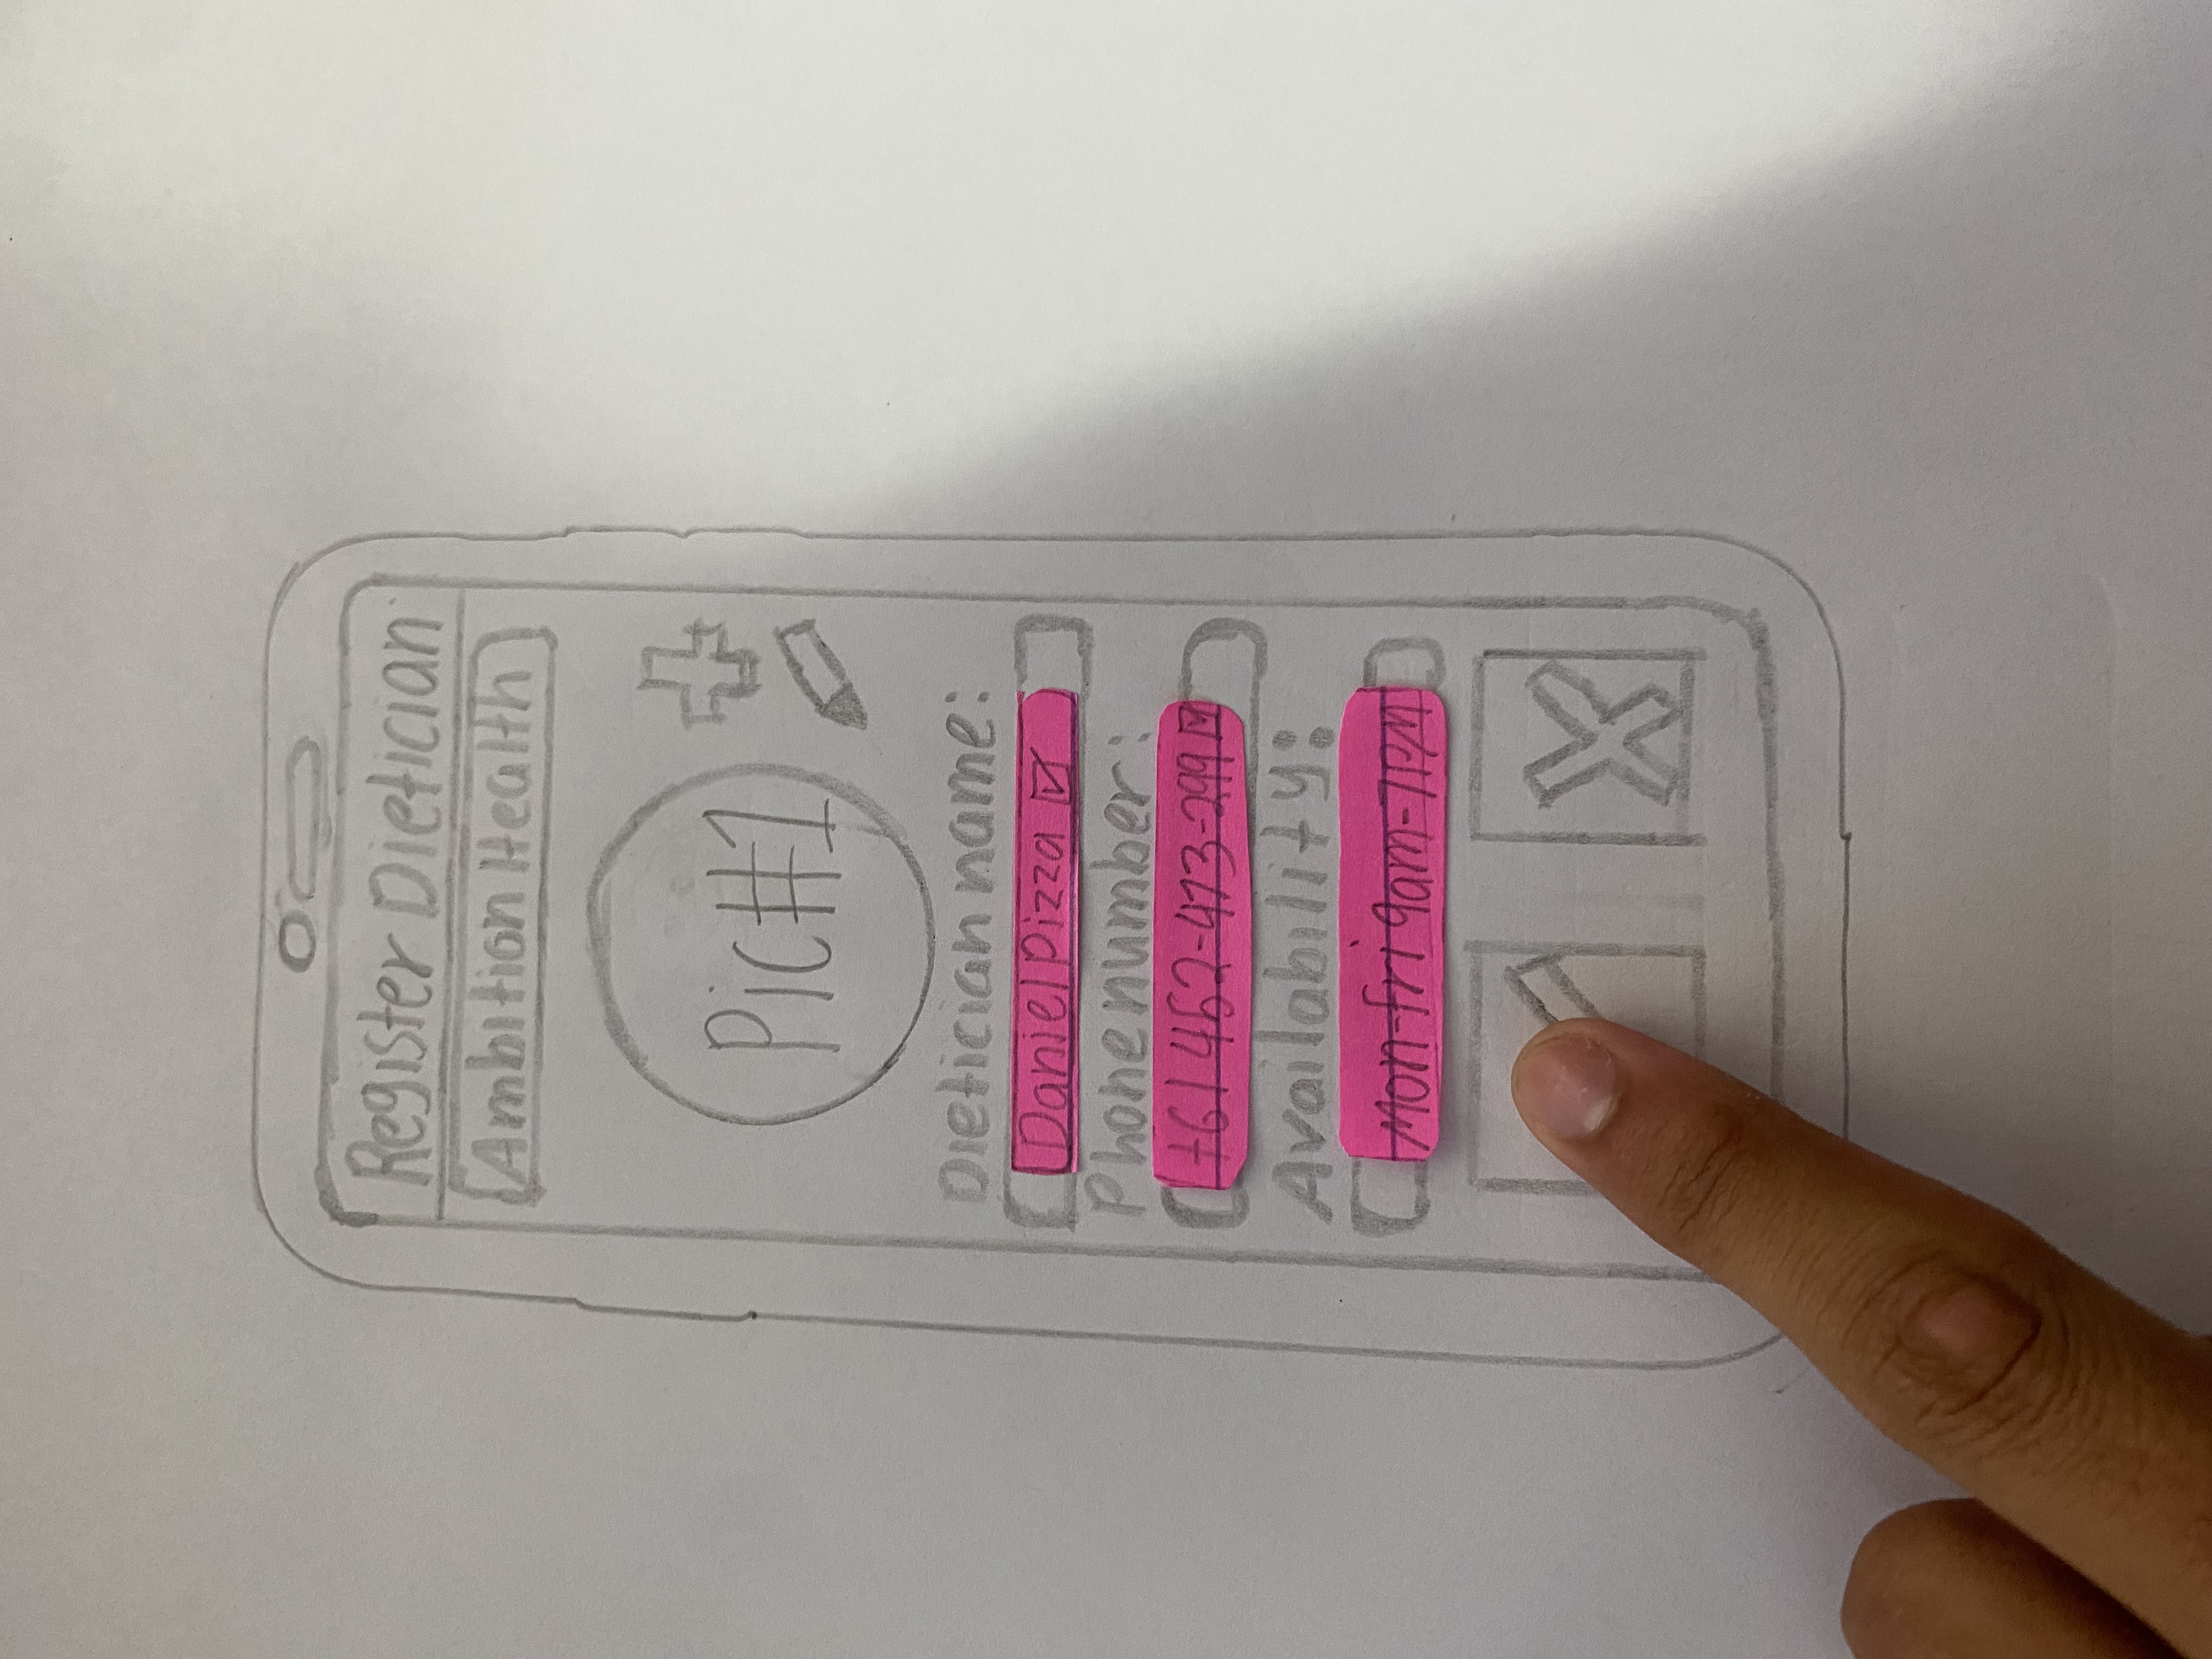 Register Dietician
Ambition Health
Pic#1
Dietician name:
Daniel Pizza
Phone number:
+61 452-473-299
Availability:
Mon-fri 9am-7PM